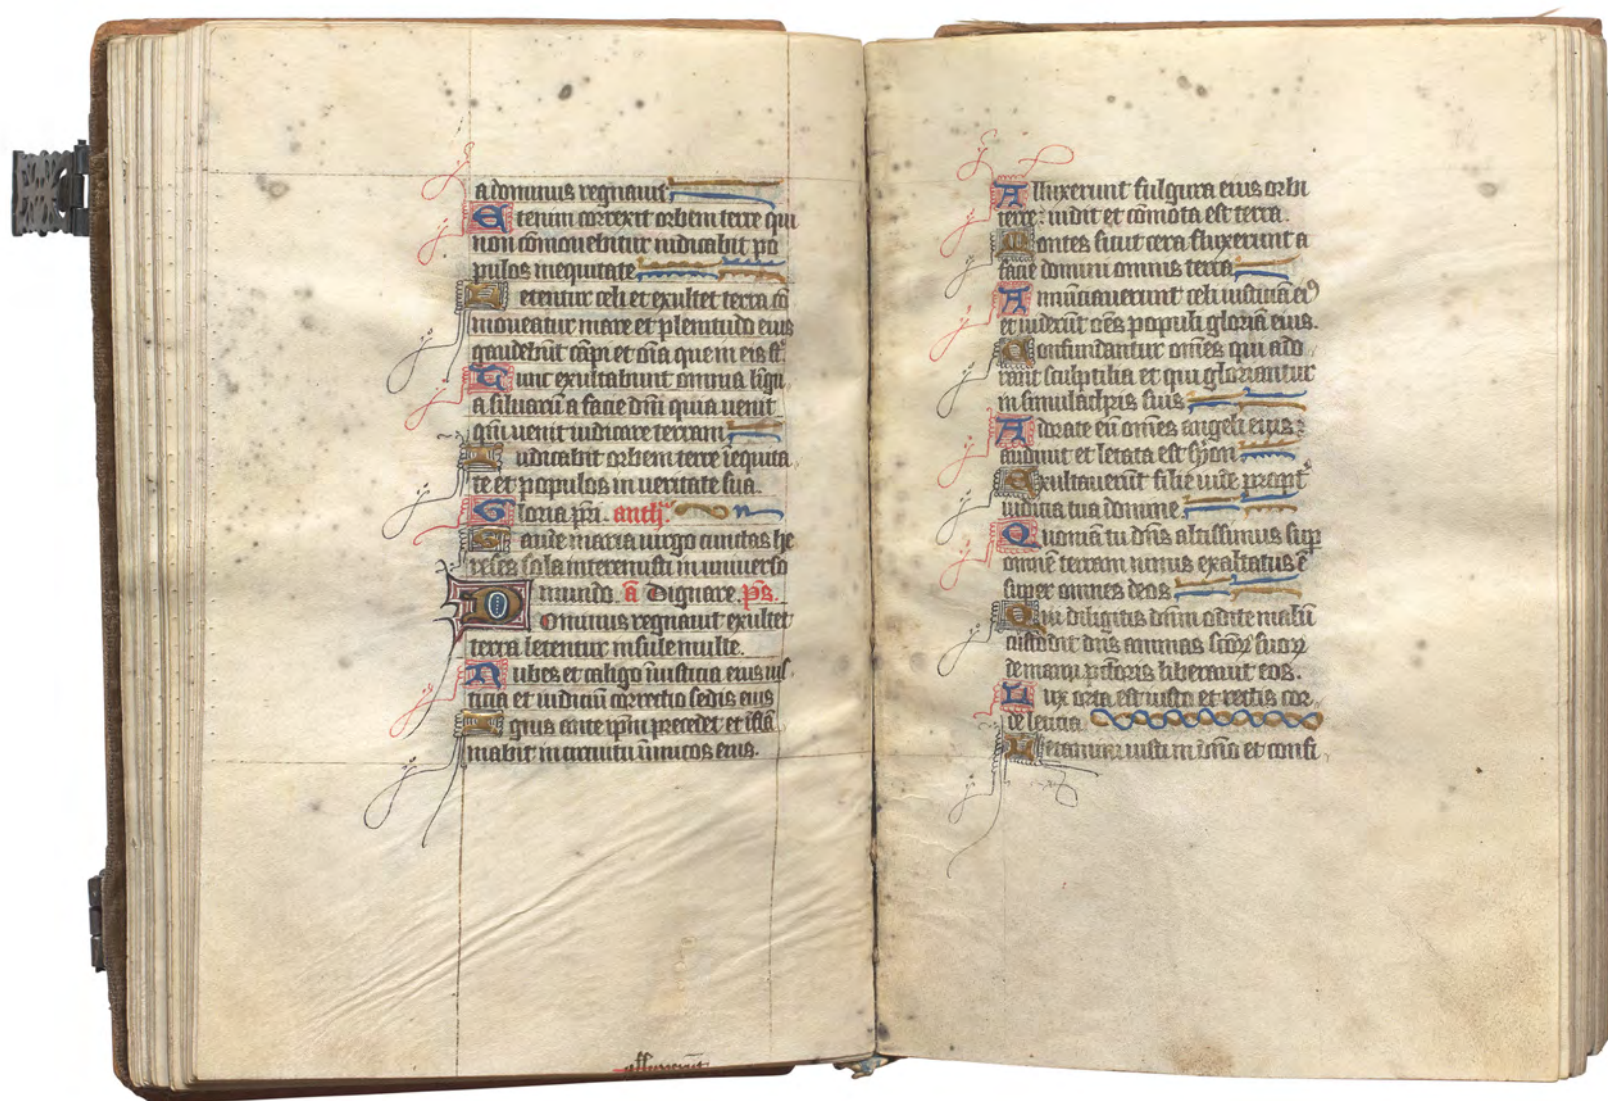 a dominus regnauit
Etenim correxit orbem terre qui
non cōmouebitur iudicabit po
pulos inequitate
Letentur celi et exultet terra cō
moueatur mare et plenitudo eius
gaudebūt cāpi et oīa que in eis st̄.
Tunc exultabunt omnia ligna
a siluarū a facie dn̄i quia uenit
qm̄ uenit iudicare terram
Iudicabit orbem terre īequita
te et populos in ueritate sua.
Gloria pr̄i. anth̄.
Gaude maria uirgo cunctas he
reses sola interemisti in uniuerso
mundo. ā Dignare. ps̄.
Dominus regnauit exultet
terra letentur insule multe.
Nubes et caligo
ticia et iudiciū correctio sedis eius
Ignis ante ip̄m precedet et īflā
mabit in circuitu īnimicos eius.
alluxerūt
Alluxerunt fulgura eius orbi
terre: uidit et cōmota est terra.
Montes sicut cera fluxerunt a
facie domini omnis terra
Annūciauerunt celi iusticiā eiꝰ
et uiderūt oēs populi gloriā eius.
Confundantur om̄es qui ado
rant sculptilia et qui gloriantur
in simulachris suis
Adorate eū om̄es angeli eius:
audiuit et letata est syon
Exultauerūt filie iude propt̄
iudicia tua domine
Quoniā tu dn̄s altissimus sup̄
omnē terram nimis exaltatus ē
super omnes deos
Qui diligitis dn̄m odite malū
custodit dn̄s animas sc̄oꝝ suoꝝ
de manu pc̄toris liberauit eos.
Lux orta est iusto et rectis cor
de leticia
Letamini iusti in dn̄o et confi